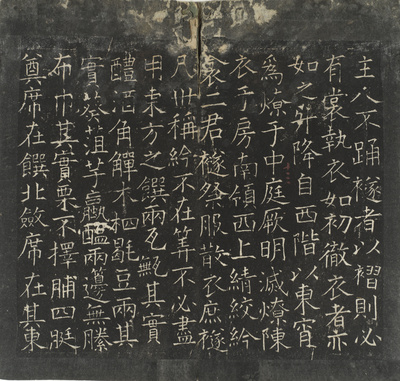 主人不踊襚者以褶則必
有裳執衣如初徹衣者亦
如之升降自西階以東宵
爲燎于中庭厥明滅燎陳
衣于房南領西上綪絞紟
衾二君襚祭服散衣庶襚
凡卅稱紟不在筭不必盡
用東方之饌兩瓦甒其實
醴酒角觶木柶毼豆兩其
實葵菹芋蠃醢兩籩無縢
布巾其實栗不擇脯四脡
奠席在饌北斂席在其東